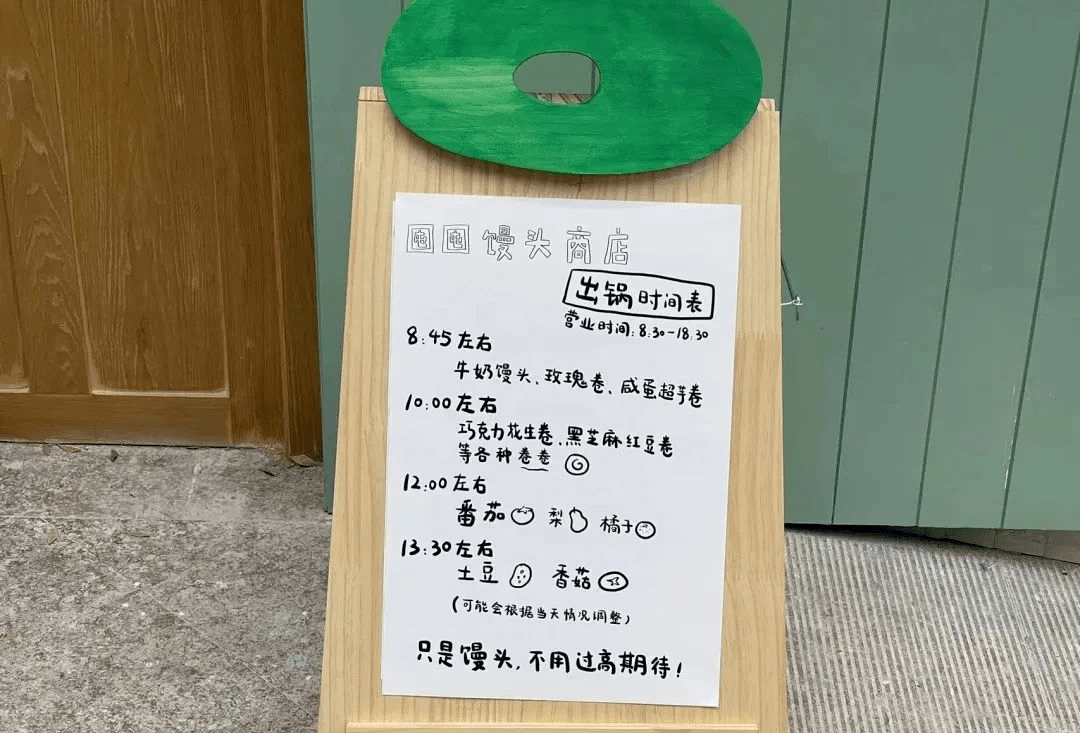 馒头商店
出锅时间表
营业时间:8:30-18:30
8:45左右
牛奶馒头、玫瑰卷、咸蛋超芋卷
10:00左右
巧克力花生卷、黑芝麻红豆卷
等各种卷卷
12:00左右
番茄 梨 橘子
13:30左右
土豆 香菇
(可能会根据当天情况调整)
只是馒头,不用过高期待!